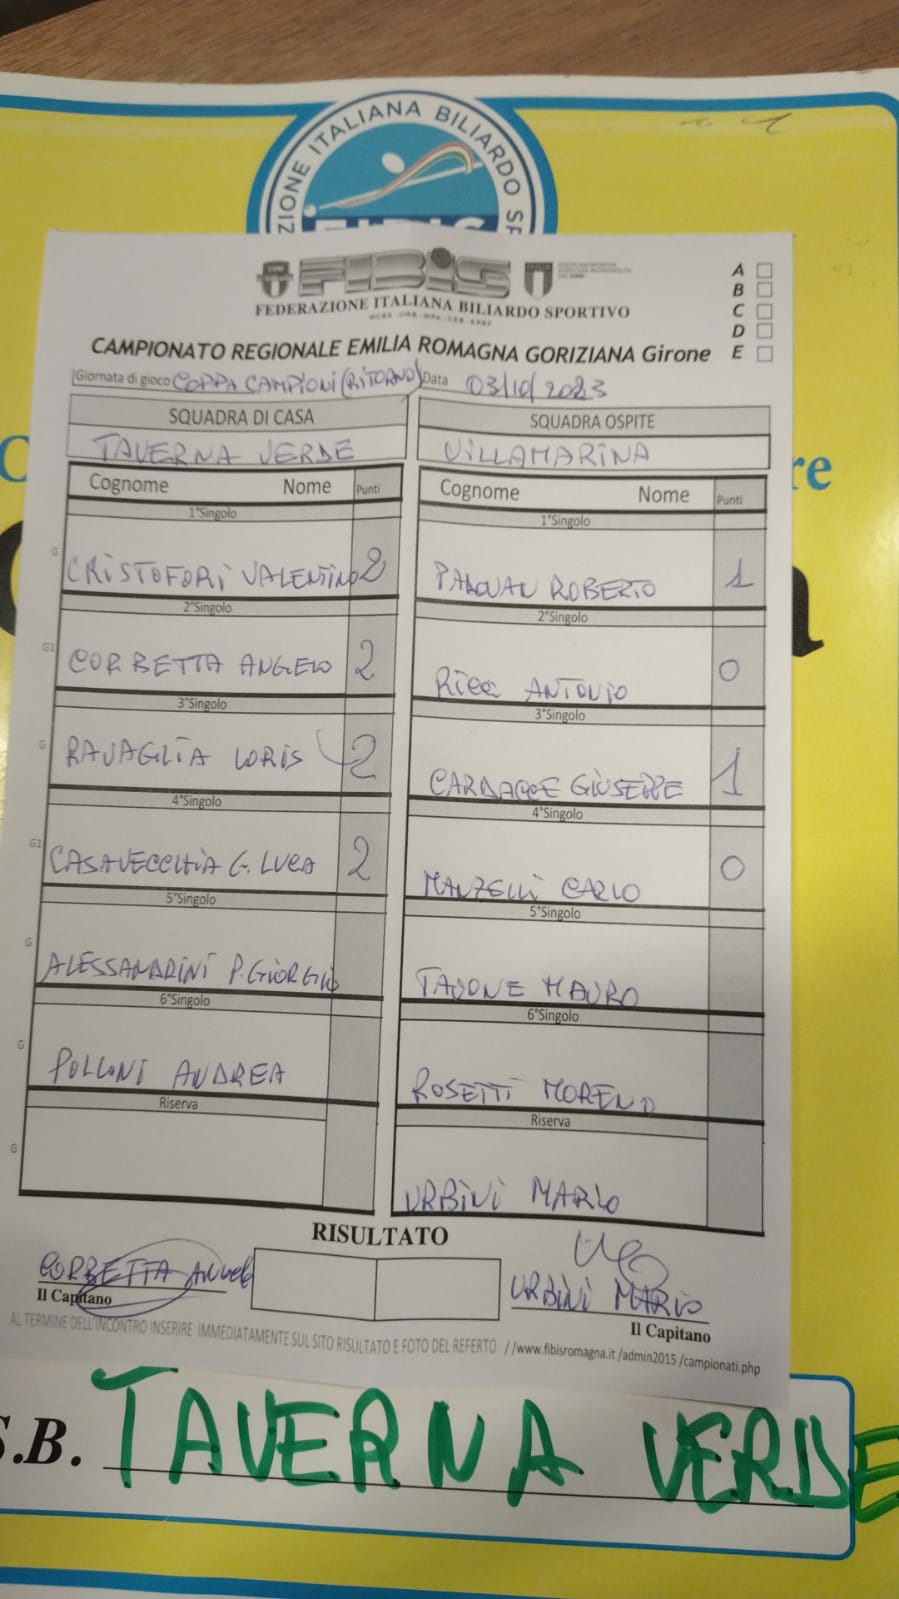 ZIONE ITALIANA BILIARDO SP
FIBIS
FEDERAZIONE ITALIANA BILIARDO SPORTIVO
A
B
C
D
E
CAMPIONATO REGIONALE EMILIA ROMAGNA GORIZIANA Girone
Giornata di gioco COPPA CAMPIONI (RITORNO) Data 03/10/2023
SQUADRA DI CASA SQUADRA OSPITE
TAVERNA VERDE VILLAMARINA
Cognome Nome Punti Cognome Nome Punti
1°Singolo 1°Singolo
G CRISTOFORI VALENTINO 2 PADOVAN ROBERTO 1
2°Singolo 2°Singolo
G1 CORBETTA ANGELO 2 RICCI ANTONIO 0
3°Singolo 3°Singolo
G RAVAGLIA LORIS 2 GIUSEPPE 1
4°Singolo 4°Singolo
G1 CASAVECCHIA G. LUCA 2 MANZELLI CARLO 0
5°Singolo 5°Singolo
G ALESSANDRINI P.GIORGIO TAVONE MAURO
6°Singolo 6°Singolo
G POLLONI ANDREA ROSETTI MORENO
Riserva Riserva
G URBINI MARIO
RISULTATO
CORBETTA ANGELO URBINI MARIO
Il Capitano Il Capitano
AL TERMINE DELL'INCONTRO INSERIRE IMMEDIATAMENTE SUL SITO RISULTATO E FOTO DEL REFERTO //www.fibisromagna.it /admin2015 /campionati.php
S.B. TAVERNA VERDE